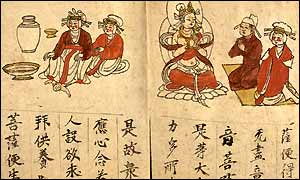 薩便得
无盡意
音菩
是等大
力多所
是故衆
應心念若
人設欲求
拜供養
菩薩便生